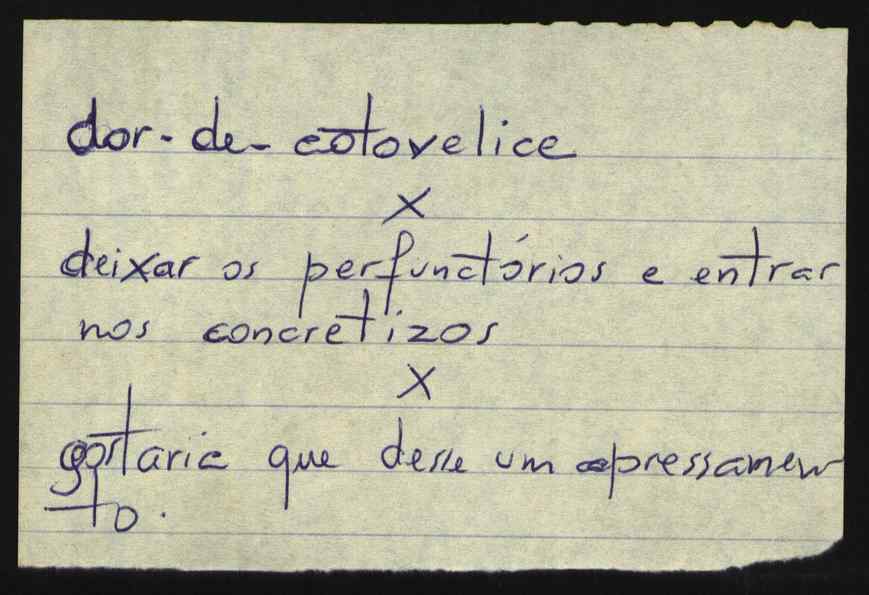 dor-de-cotovelice
X
deixar os perfunctórios e entrar
nos concretizos
X
gostaria que desse um apressamen
to.